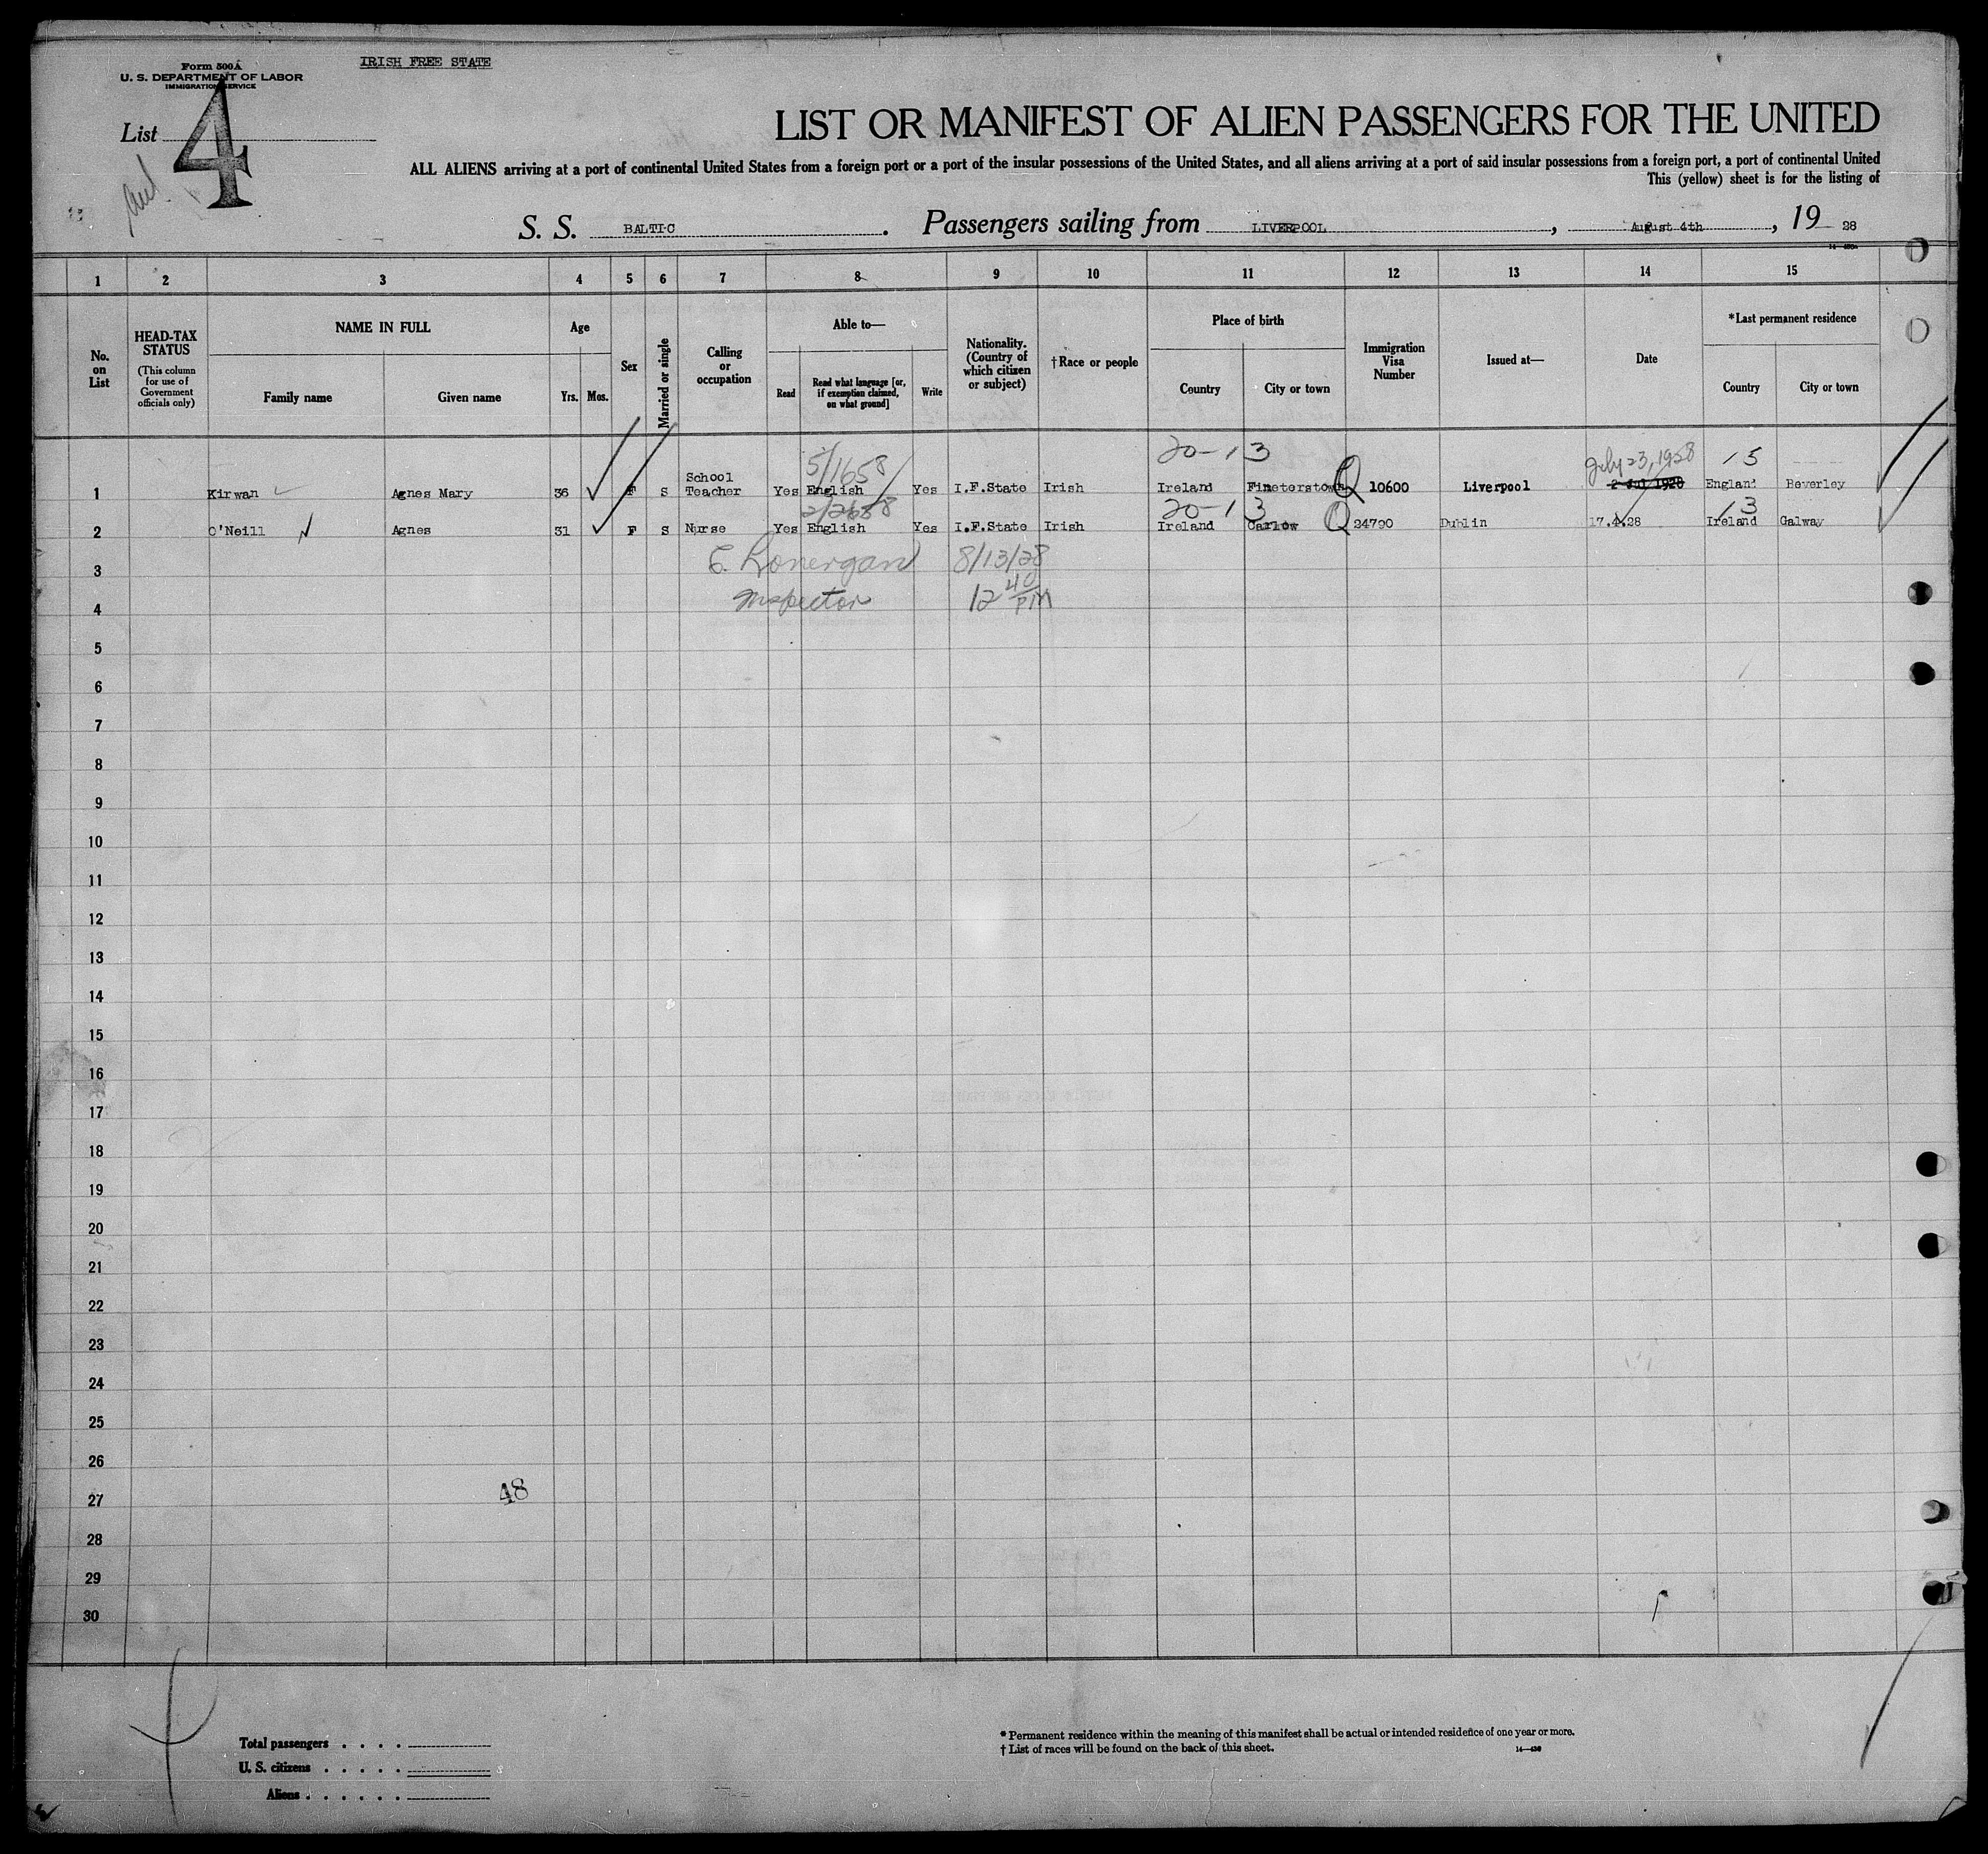 Form 500A
U. S. DEPARTMENT OF LABOR
IMMIGRATION SERVICE
IRISH FREE STATE
List 4
LIST OR MANIFEST OF ALIEN PASSENGERS FOR THE UNITED
ALL ALIENS arriving at a port of continental United States from a foreign port or a port of the insular possessions of the United States, and all aliens arriving at a port of said insular possessions from a foreign port, a port of continental United
This (yellow) sheet is for the listing of
S. S. BALTIC. Passengers sailing from LIVERPOOL, August 4th, 19 28
1 2 3 4 5 6 7 8 9 10 11 12 13 14 15
No. on List
HEAD-TAX STATUS
(This column for use of Government officials only)
NAME IN FULL
Family name Given name
Age
Yrs. Mos.
Sex
Married or single
Calling or occupation
Able to—
Read
Read what language [or, if exemption claimed, on what ground]
Write
Nationality. (Country of which citizen or subject)
†Race or people
Place of birth
Country City or town
Immigration Visa Number
Issued at—
Date
*Last permanent residence
Country City or town
5/1658 20-13 July 23, 1928 15
1 Kirwan Agnes Mary 36 F S School Teacher Yes English Yes I.F.State Irish Ireland Q 10600 Liverpool England Beverley
2/2658 20-13 13
2 O'Neill Agnes 31 F S Nurse Yes English Yes I.F.State Irish Ireland Carlow Q 24790 Dublin 17.4.28 Ireland Galway
3 Lonergan 8/13/28
4 Inspector 12 40 PM
5
6
7
8
9
10
11
12
13
14
15
16
17
18
19
20
21
22
23
24
25
26
27 48
28
29
30
Total passengers . . . .
U. S. citizens . . . . .
Aliens . . . . . .
* Permanent residence within the meaning of this manifest shall be actual or intended residence of one year or more.
† List of races will be found on the back of this sheet.